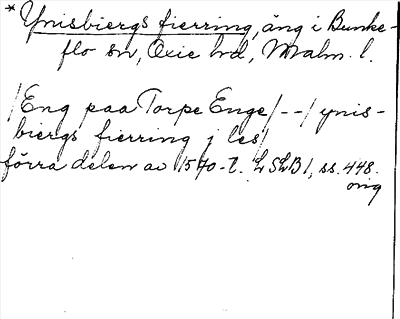 * Ynisbiergs fierring, äng i Bunke-
flo sn, Oxie hd, Malm. l.
/Eng paa Torpe Enge/ - - / ynis-
biergs fierring j les/
förra delen av 1570-t. LSLB 1, ss. 448.
orig